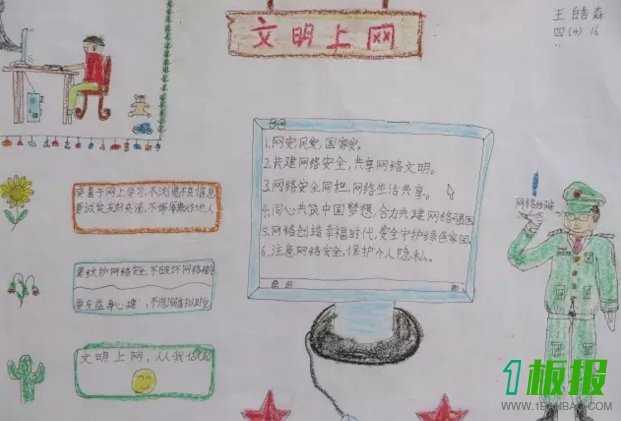 文明上网
王皓淼
四(4) 16
1.网安民安,国家安。
2.共建网络安全,共享网络文明。
3.网络安全同担,网络生活共享。
4.同心共筑中国梦想,合力共建网络强国
5.网络创造幸福时代,安全守护绿色家园
6.注意网络安全,保护个人隐私。
要善于网上学习,不浏览不良信息
要诚实友好交流,不侮辱欺诈他人
要维护网络安全,不破坏网络秩序
要有益身心健
文明上网,从我做起
网络
1板报
WWW.1BANBAO.COM